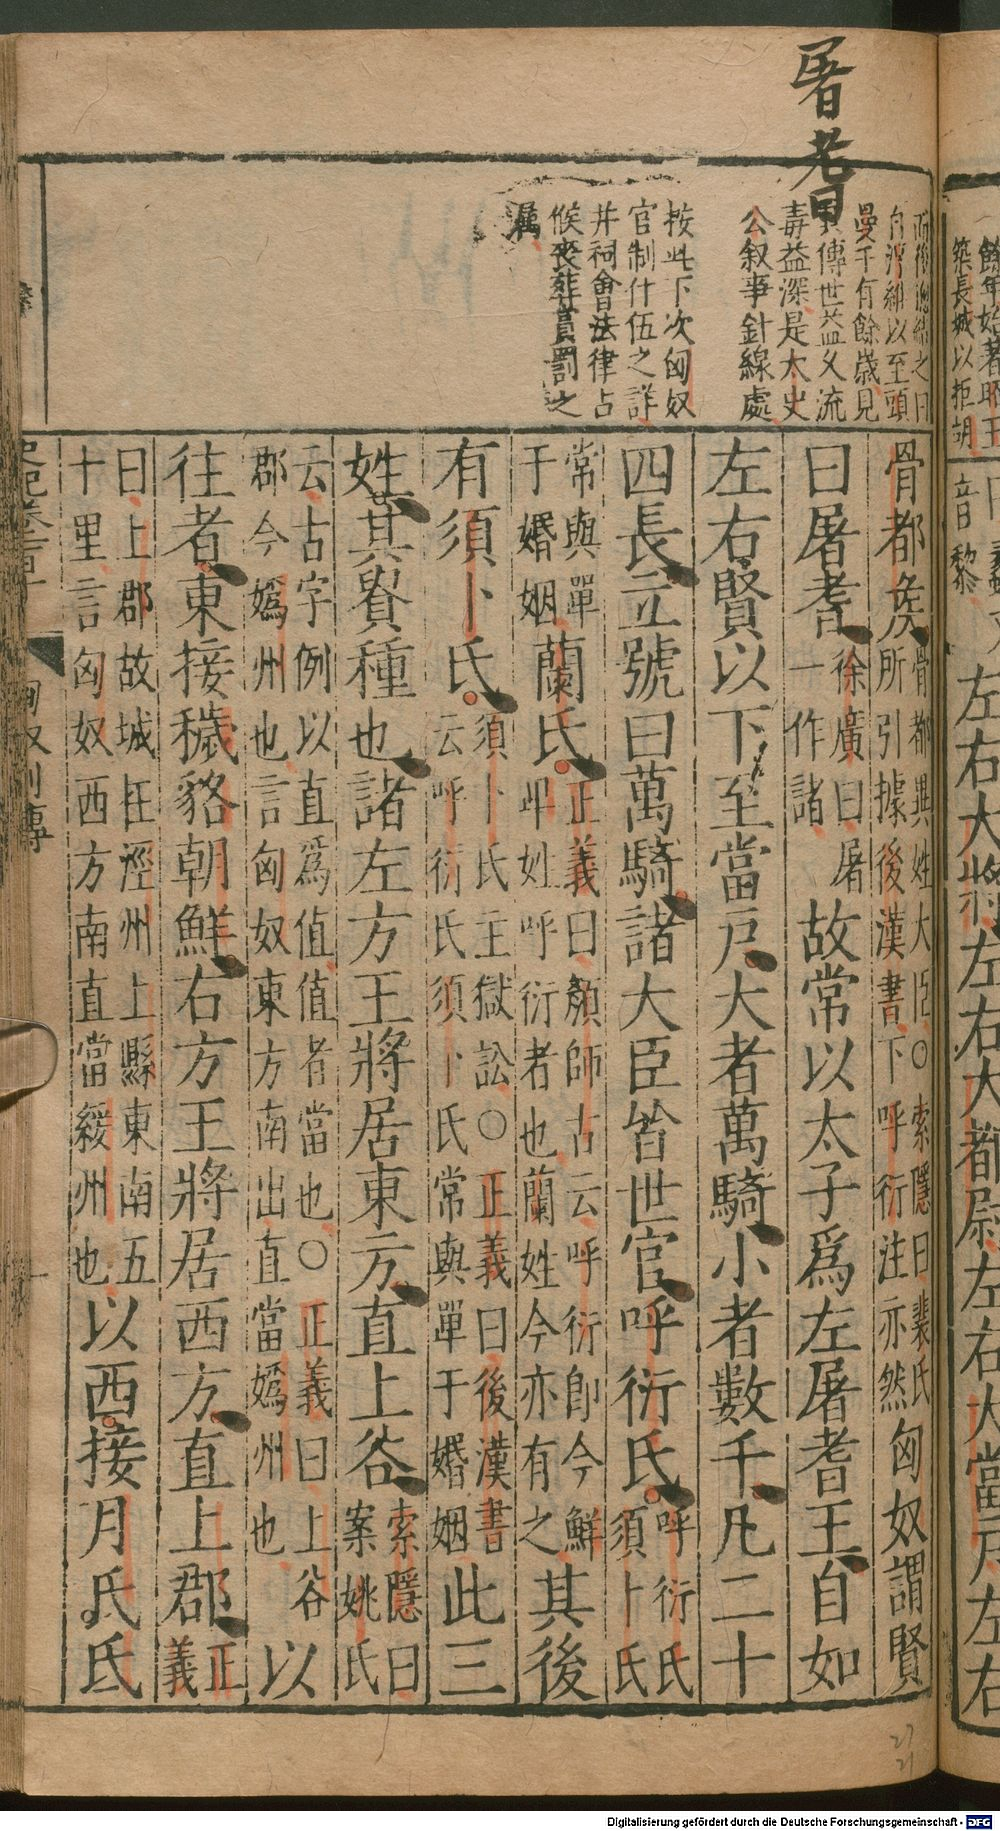 屠耆
自淳維以至頭
曼千有餘歲見
其傳世益久流
毒益深是太史
公叙事針線處
按此下次匈奴
官制什伍之詳
并祠會法律占
候喪葬賞罰之
属
骨都侯
骨都異姓大臣○索隱曰裴氏
所引據後漢書下呼衍注亦然
匈奴謂賢
曰屠耆
徐廣曰屠
一作諸
故常以太子爲左屠耆王自如
左右賢以下至當戶大者萬騎小者數千凡二十
四長立號曰萬騎諸大臣皆世官呼衍氏
呼衍氏
須卜氏
常與單
于婚姻
蘭氏
正義曰顏師古云呼衍卽今鮮
卑姓呼衍者也蘭姓今亦有之
其後
有須卜氏
須卜氏主獄訟○正義曰後漢書
云呼衍氏須卜氏常與單于婚姻
此三
姓其貴種也諸左方王將居東方直上谷
索隱曰
案姚氏
云古字例以直爲值值者當也○正義曰上谷
郡今嬀州也言匈奴東方南出直當嬀州也
以
往者東接穢貉朝鮮右方王將居西方直上郡
正
義
曰上郡故城在涇州上縣東南五
十里言匈奴西方南直當綏州也
以西接月氏氐
史記卷一百十
匈奴列傳
餘年始著昭王
築長城以拒胡
音黎
左右大將左右大都尉左右大當戶左右
27
21
Digitalisierung gefördert durch die Deutsche Forschungsgemeinschaft - DFG